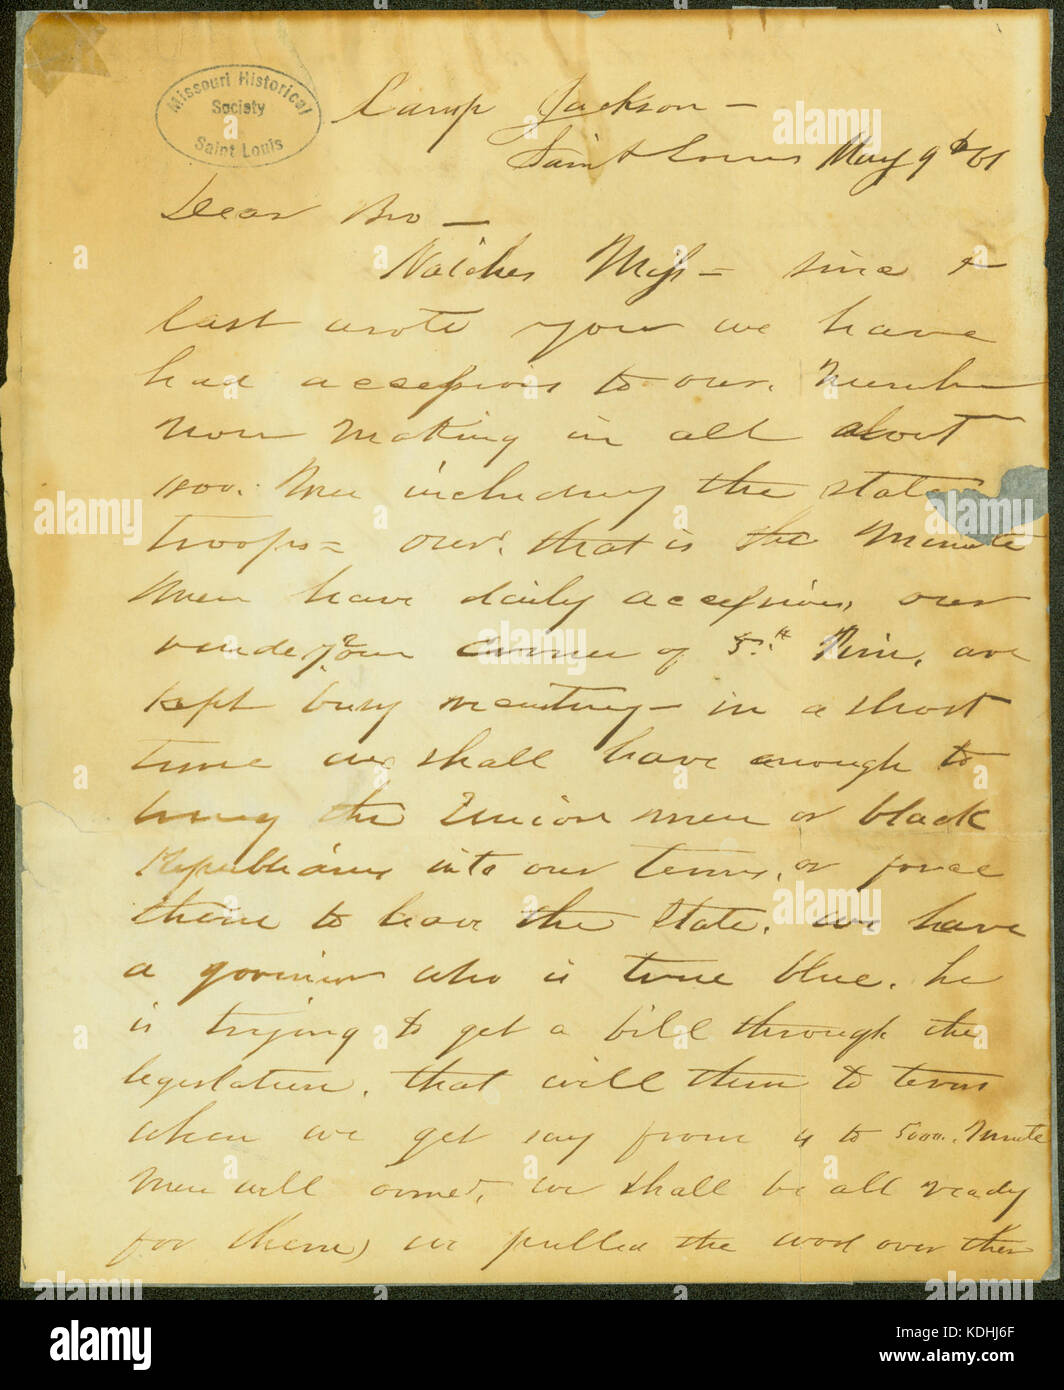 Missouri Historical
Society
Saint Louis
Camp Jackson –
Saint Louis May 9th/61
Dear Bro –
Natches Miss – since I
last wrote you we have
had accessions to our Number
now making in all about
1800. Men including the state
troops = our. that is the Minute
Men have daily accessions our
corner of 5th & Pine, are
kept busy – in a short
time we shall have enough to
bring the Union men or black
Republicans into our terms, or force
them to leave the State. we have
a govinor who is true blue. he
is trying to get a bill through the
legislature. that will them to terms
when we get say from 4 to 5000. Minute
Men will armed, we shall be all ready
for them) we pulled the wool over their
alamy
Image ID: KDHJ6F
www.alamy.com